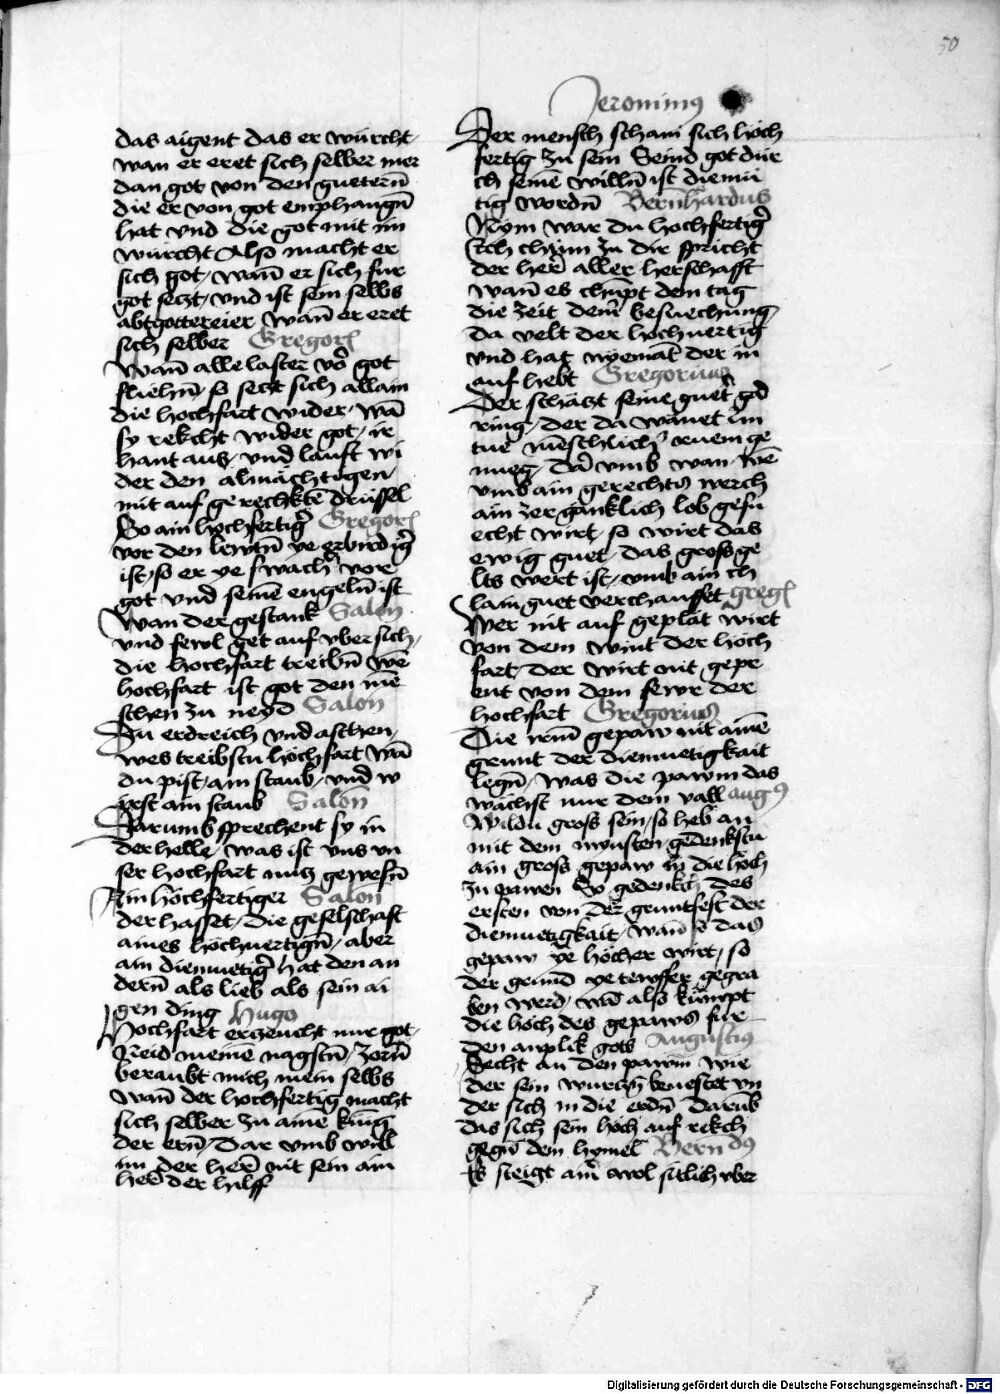 50
das aigent das er würcht
wan er eret sich selber mer
dan got von den gueterñ
die er von got emphangñ
hat vnd die got mit im
würcht Also macht er
sich got, wañ er sich fur
got seczt, vnd ist sein selbs
abtgottereier wañ er eret
sich selber Gregorꝭ
Wañ alle laster võ got
fliehñ so seczt sich allain
die hochfart wider, wã
sy rekcht wider got, ir
hant aus, vnd lauft wi
der den almächtigen
mit auf gerechkte drüssel
So ain hochfertigᵉʳ Gregorꝭ
vor den lewtñ ye erbirdigᵉʳ
ist, so er ye swachᵉʳ vor
got vnd seinē engelñ ist
Wan der gestank Salon
vnd fewl get auf vber sich,
die hochfart treibñ wē
hochfart ist got den mē
schen zu neyd Salon
Du erdreich vnd aschen,
wes treibstu hochfart wã
du pist, ain staub, vnd w
irst ain staub Salon
Darumb sprechent sy in
der helle, was ist vns vn
ser hochfart nucz gewesñ
Ain hochfertiger Salon
der hasset, die geselschaft
aines hochuertigñ, aber
ain diemuetigᵉʳ hat den an
derñ als lieb als sein ai
gen ding Hugo
Hochfart erzeucht mir got,
Neid meinē nagstñ, zorñ
beraubt mich mein selbs
Wañ der hochfertig macht
sich selber zu ainē küng
der erñ, Dar vmb will
im der herr nit sein ain
herr der hilff
Jeronimus
Der mensch scham sich hoch
fertig zu sein Seind got dur
ch seinē willñ ist diemü
tig wordñ Bernhardus
Nym war du hochfertigᵉʳ
Ich chüm zu dir spricht
der herr aller herschafft
wañ es chũpt dem tag
die zeit deinᵉʳ besuechung
da velt der hochuertig
vnd hat nyemãt der in
auf hebt Gregorius
Der schäczt seine guetᵉʳ gar
ring, der da wänet im
tue menschlichᵉʳ ruem ge
nueg, Dar vmb wan, wē
vmb ain gerechts werch
ain zergänklich lob gesu
echt wirt, so wirt das
ewig guet, das gross ge
lts wert ist, vmb ain ch
lain guet verchauffet gregꝭ
Wer nit auf geplät wirt
von dem wint der hoch
fart, der wirt nit gepr
ent von dem fewr der
hochfart Gregorius
Die irm gepaw nit ainē
grunt der diemuetigkait
legñ, was die pawm das
wächst nur dem vall augꝰ
Wildu gross sein, so heb an
mit dem mynsten gedenkstu
ain gross gepaw in die hoch
zu pawen So gedenkch des
ersten von der gruntfest der
diemuetigkait, wañ so das
gepaw ye höcher wirt, so
der grund ye tewffer gegra
ben werd, wã also kümpt
die hoch des gepaws für
den anplik gots Augustiꝰ
Secht an den pawm wie
der sein wurczñ beuestet vn
der sich in die erdñ darũb
das sich sein hoch auf rekch
gegñ dem hymel Bernãdꝰ
Es steigt ainᵉʳ wol sitlich vber
Digitalisierung gefördert durch die Deutsche Forschungsgemeinschaft - DFG